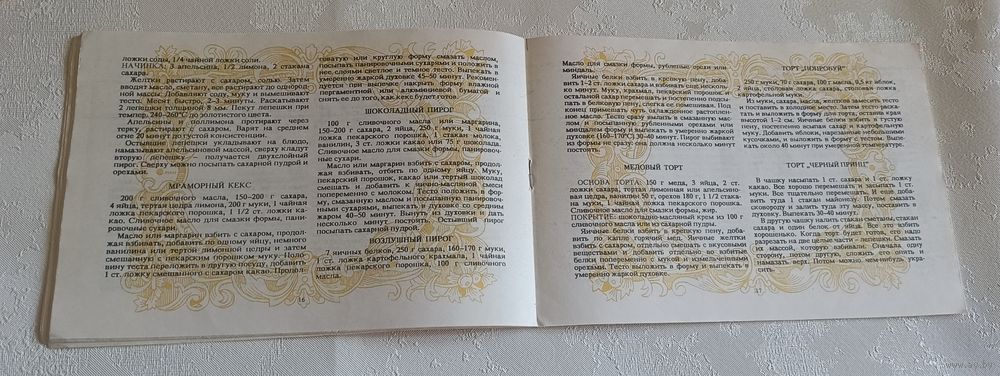 ложки соды, 1/4 чайной ложки соли.
НАЧИНКА: 3 апельсина, 1/2 лимона, 2 стакана
сахара.
Желтки растирают с сахаром, солью. Затем
вводят масло, сметану, все растирают до однород-
ной массы. Добавляют соду, муку и вымешивают
тесто. Месят быстро, 2–3 минуты. Раскатывают
2 лепешки толщиной 8 мм. Пекут лепешки при
темпер. 240–260°С до золотистого цвета.
Апельсины и поллимона протирают через
терку, растирают с сахаром. Варят на среднем
огне 20 минут до густой консистенции.
Остывшие лепешки укладывают на блюдо,
намазывают апельсиновой массой, сверху кладут
вторую лепешку – получается двухслойный
пирог. Сверху можно посыпать сахарной пудрой и
орехами.
МРАМОРНЫЙ КЕКС
200 г сливочного масла, 150–200 г сахара,
4 яйца, тертая цедра лимона, 200 г муки, 1 чайная
ложка пекарского порошка, 1 1/2 ст. ложки ка-
као. Сливочное масло для смазки формы, пани-
ровочные сухари.
Масло или маргарин взбить с сахаром, продол-
жая взбивать, добавить по одному яйцу, немного
ванилина или тертой лимонной цедры и затем
смешанную с пекарским порошком муку. Поло-
вину теста переложить в другую посуду, добавить
1 ст. ложку смешанного с сахаром какао. Продол-
говатую или круглую форму смазать маслом,
посыпать панировочными сухарями и положить в
нее слоями светлое и темное тесто. Выпекать в
умеренно жаркой духовке 45–50 минут. Рекомен-
дуется при выпечке накрыть форму влажной
пергаментной или алюминиевой бумагой и
снять ее до того, как кекс будет готов.
ШОКОЛАДНЫЙ ПИРОГ
100 г сливочного масла или маргарина,
150–200 г сахара, 2 яйца, 250 г муки, 1 чайная
ложка пекарского порошка, 1 стакан молока,
ванилин, 3 ст. ложки какао или 75 г шоколада.
Сливочное масло для смазки формы, панировоч-
ные сухари.
Масло или маргарин взбить с сахаром, продол-
жая взбивать, отбить по одному яйцу. Муку,
пекарский порошок, какао или тертый шоколад
смешать и добавить к яично-масляной смеси
попеременно с молоком. Тесто положить в фор-
му, смазанную маслом и посыпанную панировоч-
ными сухарями, выпекать в духовке со средним
жаром 40–50 минут. Вынуть из духовки и дать
несколько минут постоять. Остывший пирог
посыпать сахарной пудрой.
ВОЗДУШНЫЙ ПИРОГ
7 яичных белков, 250 г сахара, 160–170 г муки,
1 ст. ложка картофельного крахмала, 1 чайная
ложка пекарского порошка, 100 г сливочного
масла.
16
Масло для смазки формы, рубленые орехи или
миндаль.
Яичные белки взбить в крепкую пену, доба-
вить 1–2 ст. ложки сахара и взбивать еще несколь-
ко минут. Муку, крахмал, пекарский порошок и
остальной сахар перемешать и постепенно подсы-
пать в белковую пену, слегка ее помешивая. Под
конец примешать чуть охлажденное растоплен-
ное масло. Тесто сразу вылить в смазанную мас-
лом и посыпанную рублеными орехами или
миндалем форму и выпекать в умеренно жаркой
духовке (160–170°С) 30–40 минут. Пирог выбивают
из формы не сразу: он должна несколько минут
постоять.
МЕДОВЫЙ ТОРТ
ОСНОВА ТОРТА: 150 г меда, 3 яйца, 2 ст.
ложки сахара, тертая лимонная или апельсино-
вая цедра, ванилин, 50 г орехов 180 г, 1 1/2 стака-
на муки, 1 чайная ложка пекарского порошка.
Сливочное масло для смазки формы, жир.
ПОКРЫТИЕ: шоколадно-масляный крем из 100 г
сливочного масла или из сахарной пудры.
Яичные белки взбить в крепкую пену, доба-
вить по капле горячий мед. Яичные желтки
взбить с сахаром, отдельно смешать с вкусовыми
веществами и добавить отдельно во взбитые
белки попеременно с мукой и измельченными
орехами. Тесто выложить в форму и выпекать в
умеренно жаркой духовке.
250 г муки, 70 г сахара, 100 г масла, 0,5 кг яблок,
1 яйцо, столовая ложка сахара, столовая ложка
картофельной муки.
Из муки, сахара, масла, желтков замесить тесто
и поставить в холодное место. Затем тесто раска-
тать и выложить в форму для торта, оставив края
высотой 1–2 см. Яичные белки взбить в густую
пену, постепенно всыпая сахар и картофельную
муку. Добавить яблоки, нарезанные небольшими
кусочками, и выложить в форму с тестом. Выпе-
кать около 40 минут при умеренной температуре.
ТОРТ „ЧЕРНЫЙ ПРИНЦ"
В чашку насыпать 1 ст. сахара и 1 ст. ложку
какао. Все хорошо перемешать и насыпать 1 ст.
муки. Все тщательно перемешать. И еще доба-
вить туда 1 стакан майонезу. Потом смазать
сковороду и залить туда эту массу, поставить в
духовку. Выпекать 30–40 минут.
В другую чашку налить стакан сметаны, стакан
сахара и один белок от яйца. Все это взбить
хорошенько. Когда торт будет готов, его надо
разрезать на две целые части – лепешки. Смазать
их массой, которую взбивали. Сначала одну
сторону, потом другую, сложить его опять и
намазать верх. Потом можно чем-нибудь укра-
сить.
17